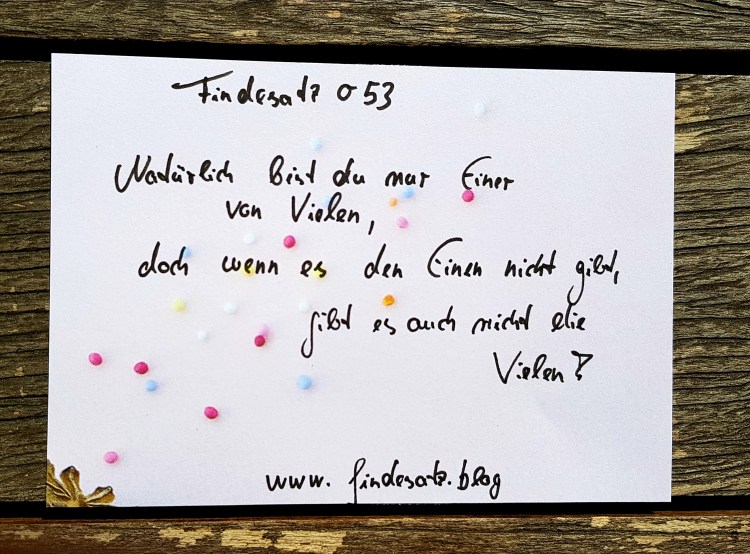 Findesatz 053
Natürlich bist du nur Einer
von Vielen,
doch wenn es den Einen nicht gibt,
gibt es auch nicht die
Vielen?
www.findesatz.blog